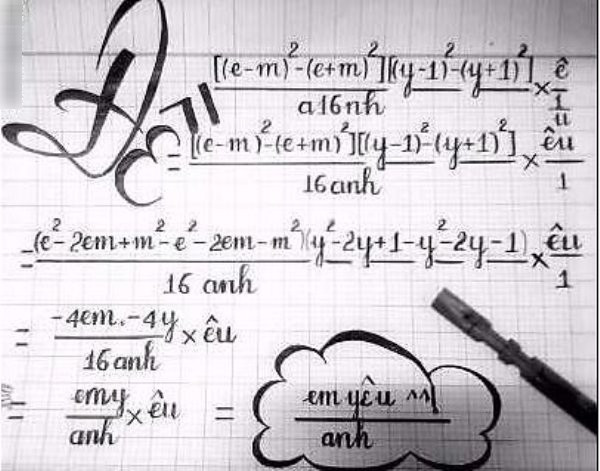 [(e-m)²-(e+m)²][(y-1)²-(y+1)²] / a16nh × ê / 1/u
= [(e-m)²-(e+m)²][(y-1)²-(y+1)²] / 16anh × êu / 1
= (e²-2em+m²-e²-2em-m²)(y²-2y+1-y²-2y-1) / 16 anh × êu / 1
= -4em.-4y / 16anh × êu
= emy / anh × êu = em yêu ^^ / anh